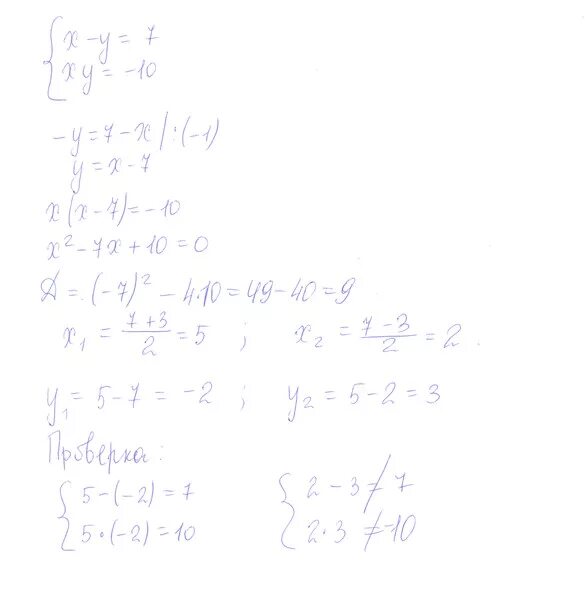 { x - y = 7
{ xy = -10
-y = 7 - x | : (-1)
y = x - 7
x(x - 7) = -10
x² - 7x + 10 = 0
D = (-7)² - 4·10 = 49 - 40 = 9
x₁ = (7+3)/2 = 5 ; x₂ = (7-3)/2 = 2.
y₁ = 5 - 7 = -2 ; y₂ = 5 - 2 = 3
Проверка:
{ 5 - (-2) = 7 { 2 - 3 ≠ 7
{ 5·(-2) = 10 { 2·3 ≠ -10